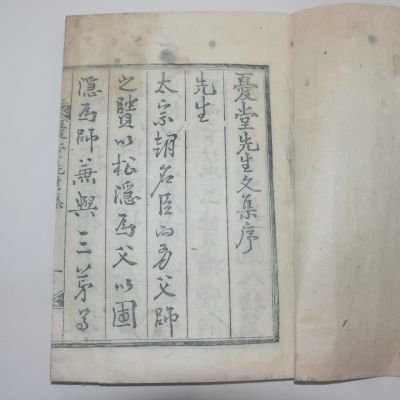 憂堂先生文集序
先生
太宗朝名臣而另父師
之賢以松隱爲父以圃
隱爲師兼與三弟爲